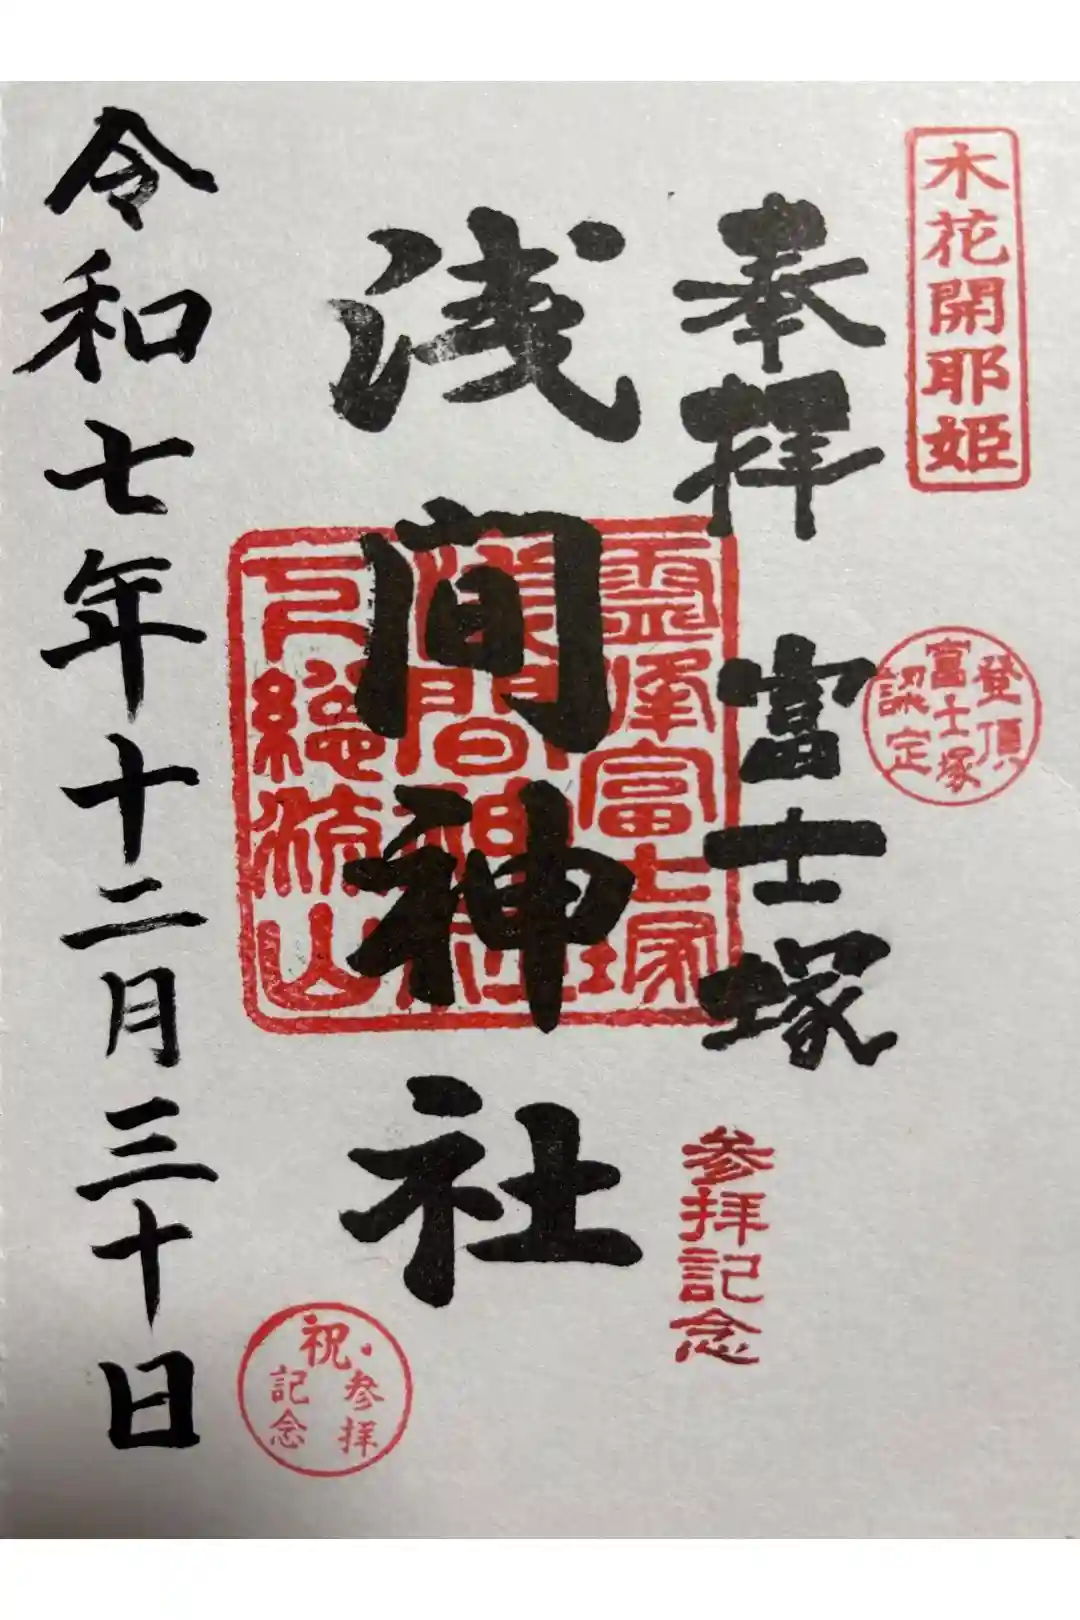 木花開耶姫
登頂
富士塚
認定
奉拝 富士塚
参拝記念
浅間神社
霊峰富士塚
浅間神社
下総流山
祝・参拝
記念
令和七年十二月三十日